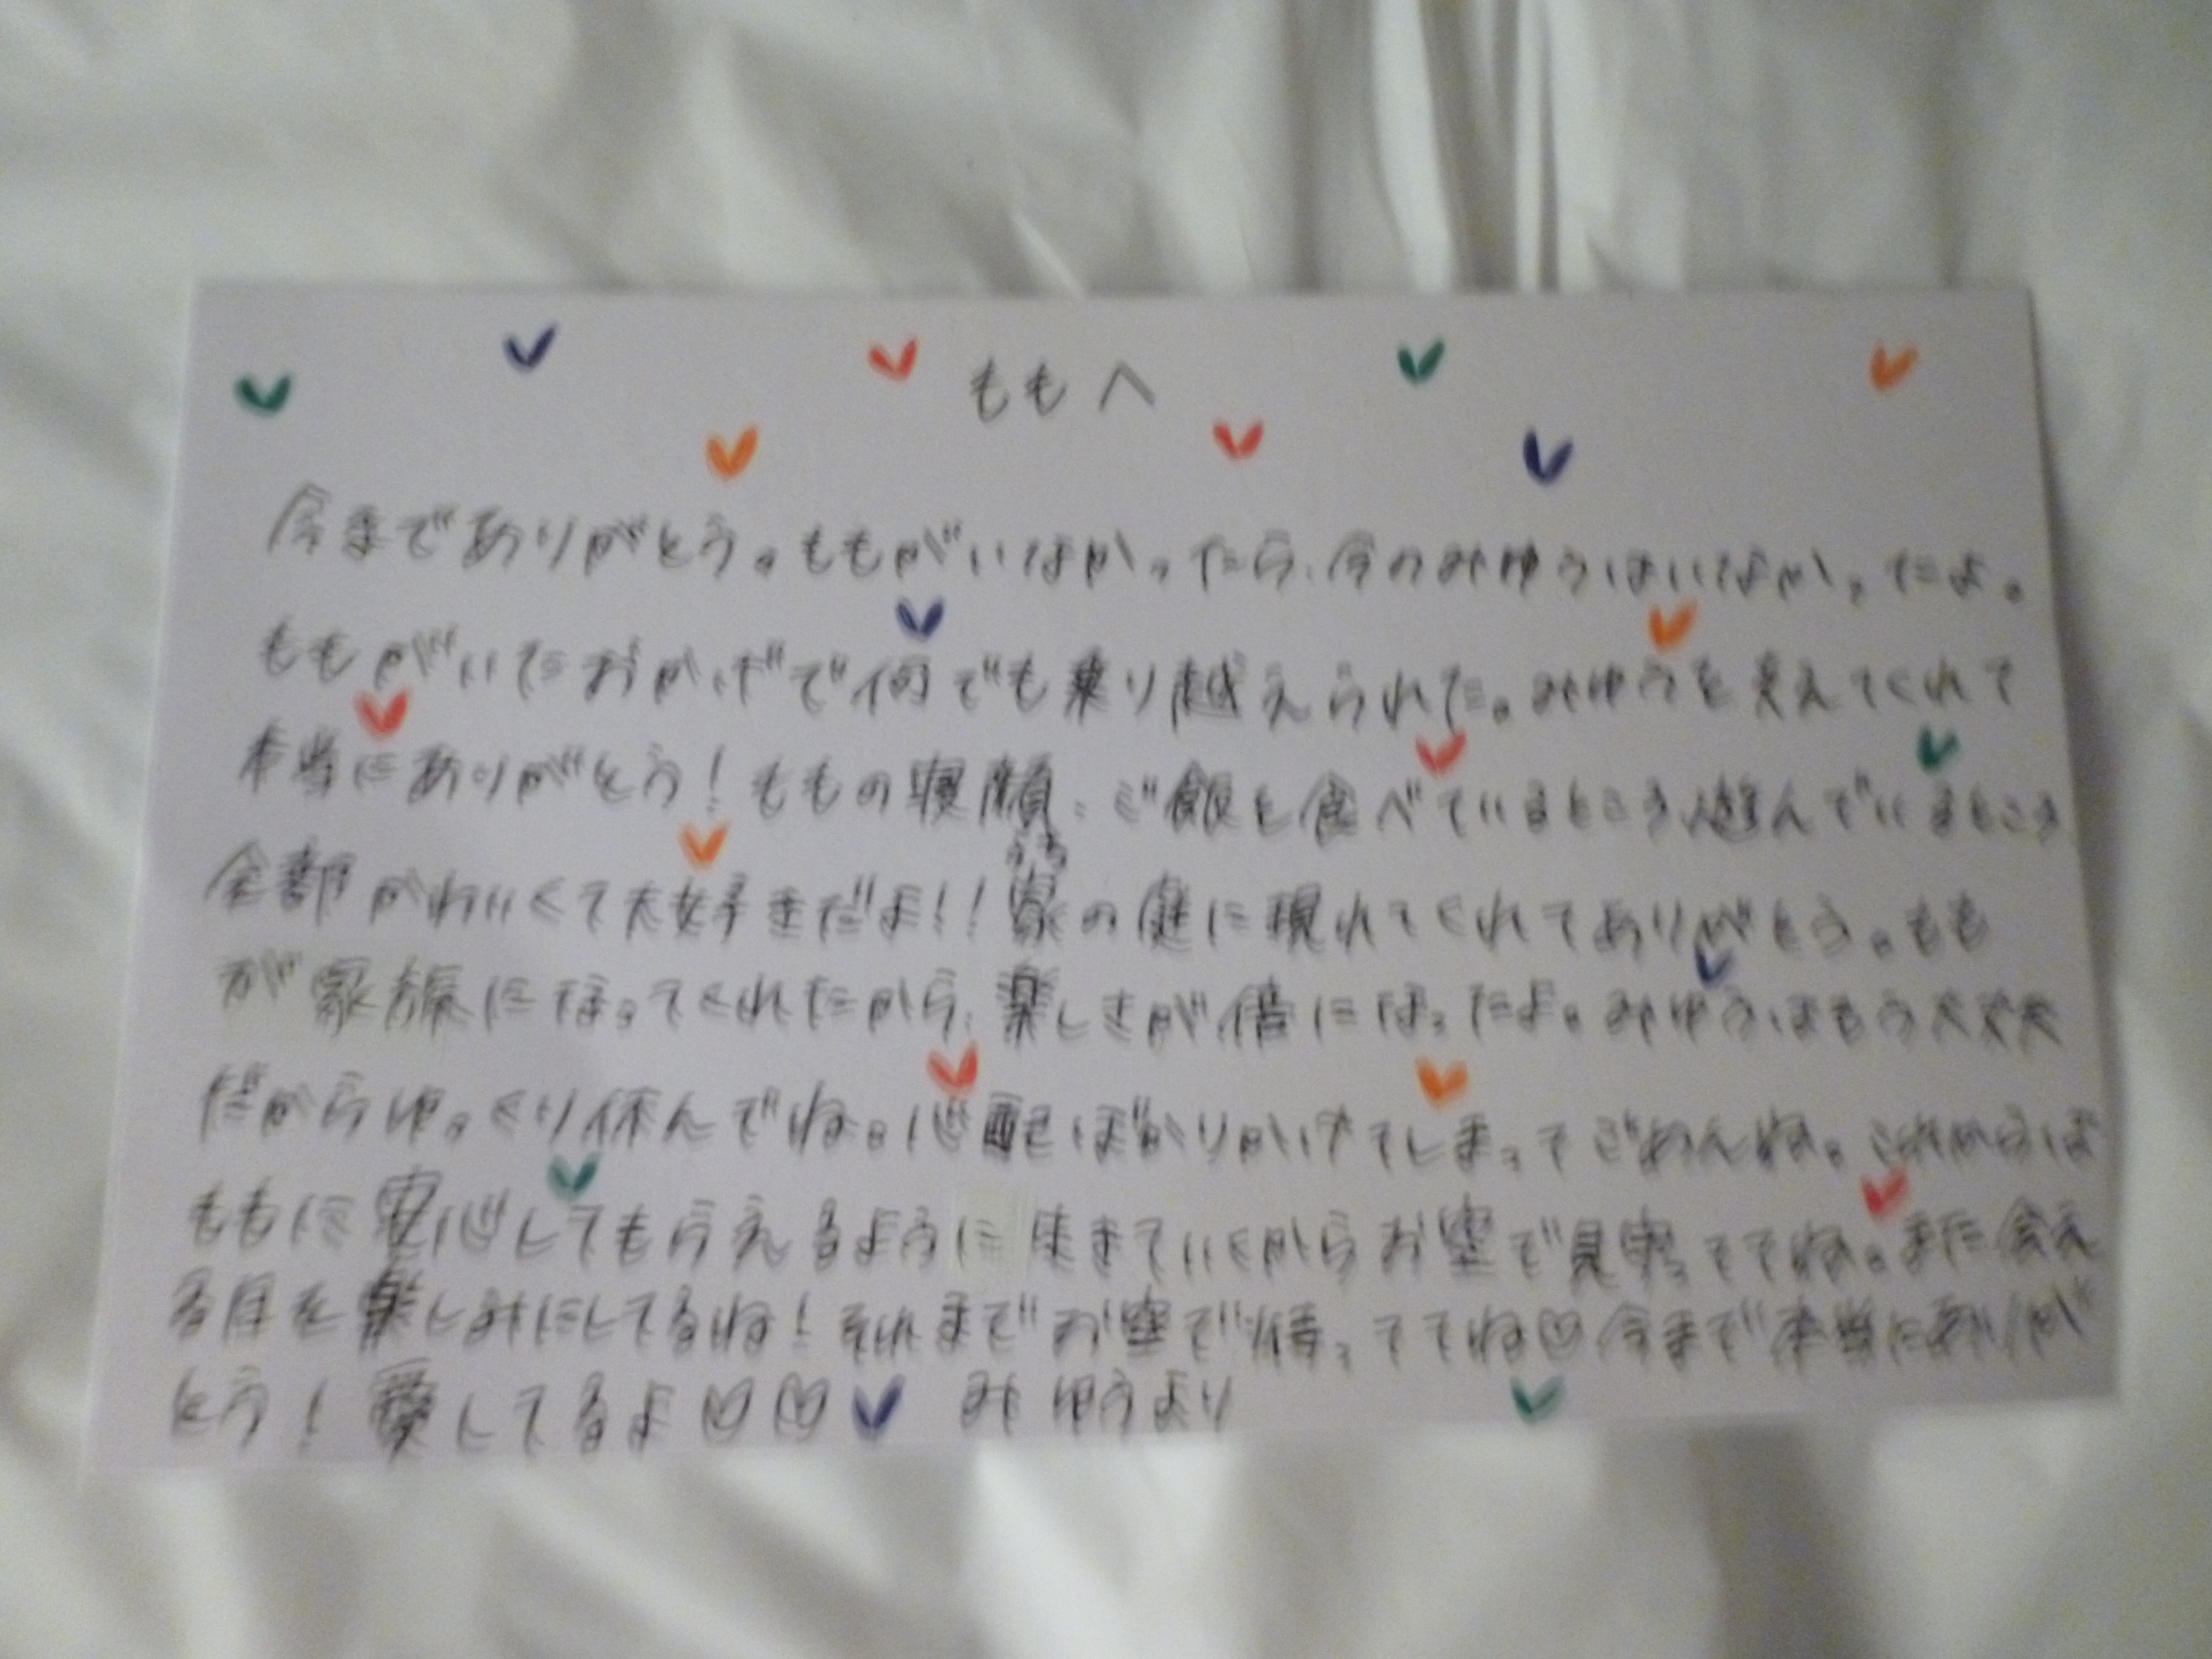 ももへ
今までありがとう。ももがいなかったら、今のみゆうはいなかったよ。
ももがいたおかげで何でも乗り越えられた。みゆうを支えてくれて
本当にありがとう！ももの寝顔、ご飯を食べているところ、遊んでいるところ
全部かわいくて大好きだよ！！家の庭に現れてくれてありがとう。もも
うち
が家族になってくれたから、楽しさが倍になったよ。みゆうはもう大丈夫
だからゆっくり休んでね。心配ばかりかけてしまってごめんね。これからは
ももに安心してもらえるように生きていくからお空で見守っててね。また会え
る日を楽しみにしてるね！それまでお空で待っててね♡今まで本当にありが
とう！愛してるよ♡♡ みゆうより